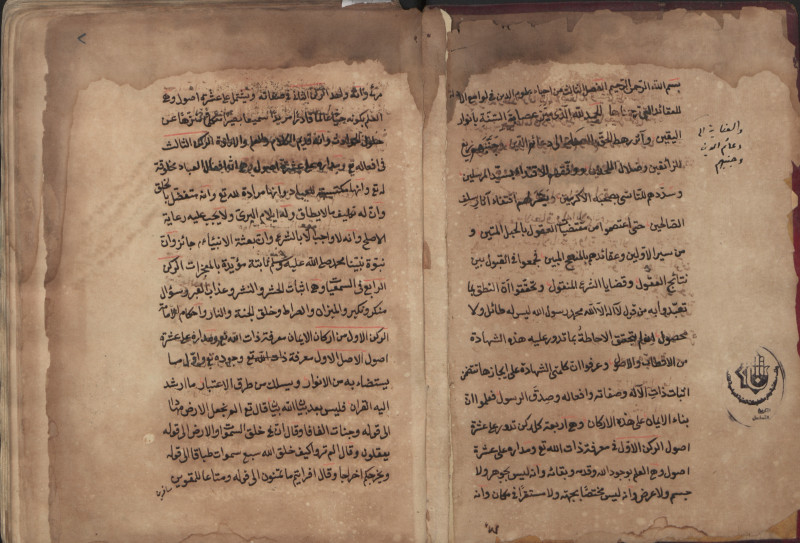 بسم الله الرحمن الرحيم الفصل الثالث من احياء علوم الدين في لوامع الا
للعقائد الحمد لله الذي ميز عصابة السنة بأنوار
اليقين وآثر رهط الحق بالهداية الى دعائم الدين وجنبهم زيغ
الزائغين وضلال الملحدين ووفقهم للاقتداء بسيد المرسلين
وسددهم للتأسي بصحبه الاكرمين ويسر لهم اقتفاء آثار سلف
الصالحين حتى اعتصموا من مقتضيات العقول بالحبل المتين و
من سير الاولين وعقائدهم بالمنهج المبين فجمعوا في القبول بين
نتائج العقول وقضايا الشرع المنقول وتحققوا ان النطق بما
تعبدوا به من قول لا اله الا الله محمد رسول الله ليس له طائل ولا
محصول ان لم يتحقق الاحاطة بما تدور عليه هذه الشهادة
من الاقطاب والاصول وعرفوا ان كلمتي الشهادة على ايجازها تتضمن
اثبات ذات الاله وصفاته وافعاله وصدق الرسول فعلموا ان
بناء الايمان على هذه الاركان وهي اربعة كل ركن تدور على عشرة
اصول الركن الاول في معرفة ذات الله تع ومداره على عشرة
اصول وهي العلم بوجود الله وقدمه وبقائه وانه ليس بجوهر ولا
جسم ولا عرض وانه ليس مختصا بجهة ولا مستقرا في مكان وانه
والهداية الى
دعائم الدين
وجنبهم
مرئي وانه واحد الركن الثاني في صفاته ويشتمل على عشرة اصول وهو
العلم بكونه حيا عالما قادرا مريدا سميعا بصيرا متكلما منزها عن
حلول الحوادث وانه قديم الكلام والعلم والارادة الركن الثالث
في افعاله تع ومداره على عشرة اصول وهي ان افعال العباد مخلوقة
لله تع وانها مكتسبة للعباد وانها مرادة لله تع وانه متفضل بالخلق
وان له تكليف ما لا يطاق وله ايلام البرئ ولا يجب عليه رعاية
الاصلح وانه لا واجب الا بالشرع وان بعثة الانبياء جائز وان
نبوة نبينا محمد صلى الله عليه وسلم ثابتة مؤيدة بالمعجزات الركن
الرابع في السمعيات وهي اثبات الحشر والنشر وعذاب القبر وسؤال
منكر ونكير والميزان والصراط وخلق الجنة والنار واحكام الامامة
الركن الاول من اركان الايمان معرفة ذات الله تع ومداره على عشرة
اصول الاصل الاول معرفة ذات الله تع وجوده تع واول ما
يستضاء به من الانوار ويسلك من طرق الاعتبار ما ارشد
اليه القران فليس بعد بيان الله بيان قال تع الم نجعل الارض مهادا
الى قوله وجنات الفافا وقال ان في خلق السموات والارض الى قوله
يعقلون وقال الم تروا كيف خلق الله سبع سموات طباقا الى قوله
ويخرجكم اخراجا وقال افرايتم ما تمنون الى قوله ومتاعا للمقوين